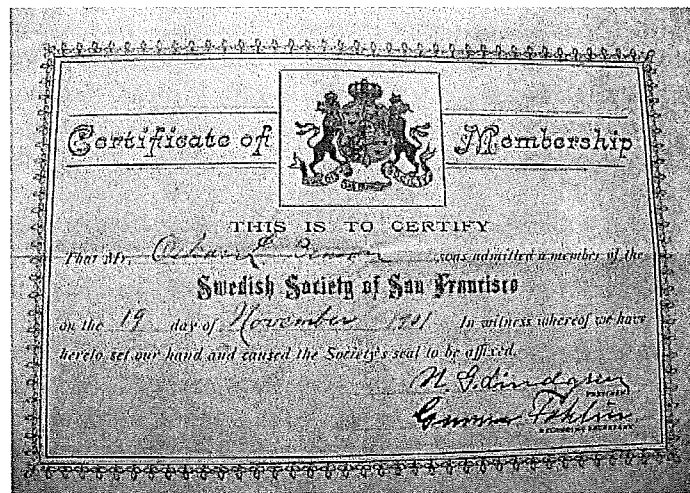 Certificate of Membership
THIS IS TO CERTIFY
That Mr. was admitted a member of the
Swedish Society of San Francisco
on the 19 day of November 1901 In witness whereof we have
hereto set our hand and caused the Society's seal to be affixed.
PRESIDENT
RECORDING SECRETARY